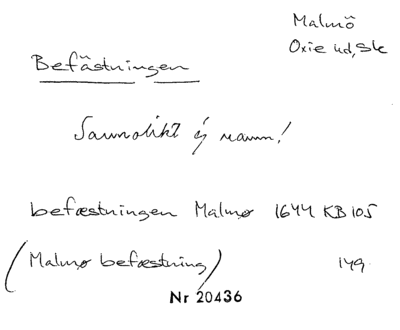 Malmö
Oxie hd, Sk
Befästningen
Sannolikt ej namn!
befæstningen Malmø 1644 KB 105
(Malmø befæstning) 149
Nr 20436